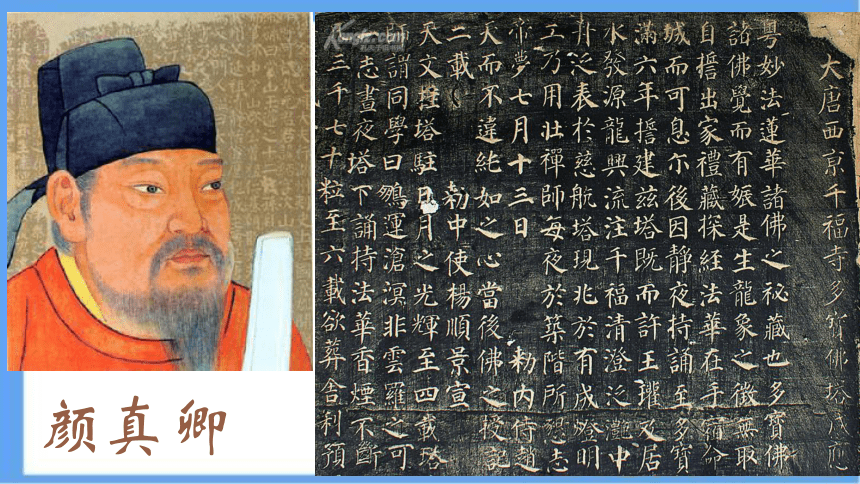 颜真卿
大唐西京千福寺多寶佛塔感應
粤妙法蓮華諸佛之祕藏也多寶佛
諸佛覺而有娠是生龍象之徵無取
自誓出家禮藏探經法華在手宿命
城而可息尓後因靜夜持誦至多寶
滿六年誓建兹塔既而許王瓘及居
水發源龍興流注千福清澄泛灧中
舟泛表於慈航塔現兆於有成燈明
工乃用壯禪師每夜於築階所懇志
帝夢七月十三日 勑内侍趙
天而不違純如之心當後佛之授記
二載 勑中使楊順景宣
天文挂塔駐日月之光輝至四載
師謂同學曰鵬運滄溟非雲羅之可
志晝夜塔下誦持法華香煙不斷
三千七十粒至六載欲葬舍利預